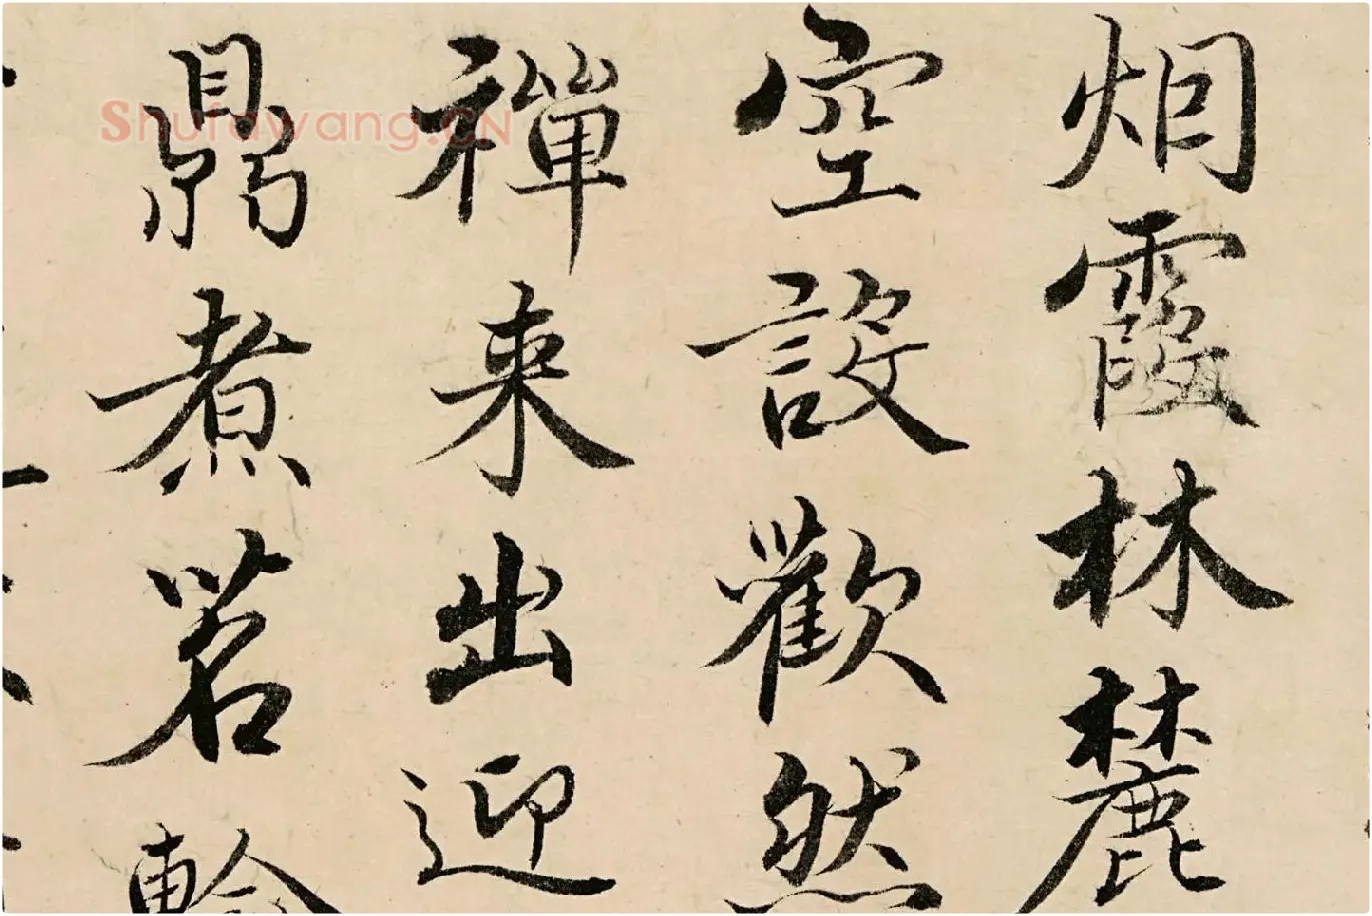 烟霞林麓
空設歡然
禪來出迎
鼎煮茗輪
Shufawang.CN